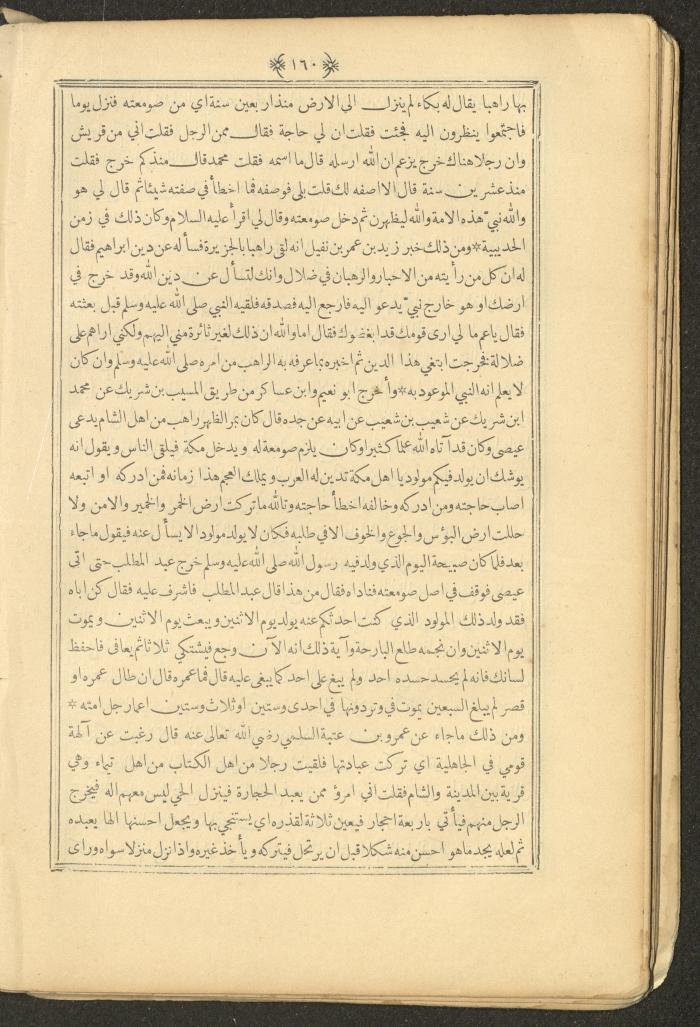 ١٦٠
بها راهبا يقال له بكاء لم ينزل الى الارض منذ اربعين سنة اي من صومعته فنزل يوما
فاجتمعوا ينظرون اليه فجئت فقلت ان لي حاجة فقال ممن الرجل فقلت اني من قريش
وان رجلا هناك خرج يزعم ان الله ارسله قال ما اسمه فقلت محمد قال منذ كم خرج فقلت
منذ عشرين سنة قال الا اصفه لك قلت بلى فوصفه فما اخطأ في صفته شيئا ثم قال لي هو
والله نبي هذه الامة والله ليظهرن ثم دخل صومعته وقال لي اقرأ عليه السلام وكان ذلك في زمن
الحديبية * ومن ذلك خبر زيد بن عمر بن نفيل انه لقى راهبا بالجزيرة فسأله عن دين ابراهيم فقال
له ان كل من رأيته من الاحبار والرهبان في ضلال وانك لتسأل عن دين الله وقد خرج في
ارضك او هو خارج نبي يدعو اليه فارجع اليه فصدقه فلقيه النبي صلى الله عليه وسلم قبل بعثته
فقال ياعم ما لي ارى قومك قد ابغضوك فقال اما والله ان ذلك لغير ثائرة مني اليهم ولكني اراهم على
ضلالة فخرجت ابتغي هذا الدين ثم اخبره بما عرفه به الراهب من امره صلى الله عليه وسلم وان كان
لا يعلم انه النبي الموعود به * وأخرج ابو نعيم وابن عساكر من طريق المسيب بن شريك عن محمد
ابن شريك عن شعيب بن شعيب عن ابيه عن جده قال كان بمر الظهر راهب من اهل الشام يدعى
عيصى وكان قد آتاه الله علما كثيرا وكان يلزم صومعة له ويدخل مكة فيلقى الناس ويقول انه
يوشك ان يولد فيكم مولود يا اهل مكة تدين له العرب ويملك العجم هذا زمانه فمن ادركه او اتبعه
اصاب حاجته ومن ادركه وخالفه اخطأ حاجته وتالله ما تركت ارض الخمر والخمير والامن ولا
حللت ارض البؤس والجوع والخوف الا في طلبه فكان لا يولد مولود الا يسأل عنه فيقول ما جاء
بعد فلما كان صبيحة اليوم الذي ولد فيه رسول الله صلى الله عليه وسلم خرج عبد المطلب حتى اتى
عيصى فوقف في اصل صومعته فناداه فقال من هذا قال عبد المطلب فاشرف عليه فقال كن اباه
فقد ولد ذلك المولود الذي كنت احدثكم عنه يولد يوم الاثنين ويبعث يوم الاثنين ويموت
يوم الاثنين وان نجمه طلع البارحة وآية ذلك انه الآن وجع فيشتكي ثلاثا ثم يعافى فاحفظ
لسانك فانه لم يحسد حسده احد ولم يبغ على احد كما يبغى عليه قال فما عمره قال ان طال عمره او
قصر لم يبلغ السبعين يموت في وتر دونها في احدى وستين او ثلاث وستين اعمار جل امته *
ومن ذلك ماجاء عن عمرو بن عتبة السلمي رضي الله تعالى عنه قال رغبت عن آلهة
قومي في الجاهلية اي تركت عبادتها فلقيت رجلا من اهل الكتاب من اهل تيماء وهي
قرية بين المدينة والشام فقلت اني امرؤ ممن يعبد الحجارة فينزل الحي ليس معهم اله فيخرج
الرجل منهم فيأتي باربعة احجار فيعين ثلاثة لقذره اي يستنجي بها ويجعل احسنها الها يعبده
ثم لعله يجد ما هو احسن منه شكلا قبل ان يرتحل فيتركه ويأخذ غيره واذا نزل منزلا سواه وراى